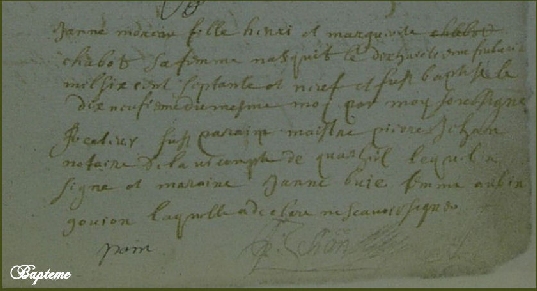 Janne moreau fille henri et marguerite chabot
chabot sa femme nasquit le dixhuictiesme
mil six cent septante et neuf et fust baptisé le
dix neufiesme du mesme mois par moy soussigné
fust parain maistre pierre
notaire de la viconpté de lequel a
signé et maraine Janne buie femme aubin
gouion laquelle a declaré ne scavoir signer
Bapteme